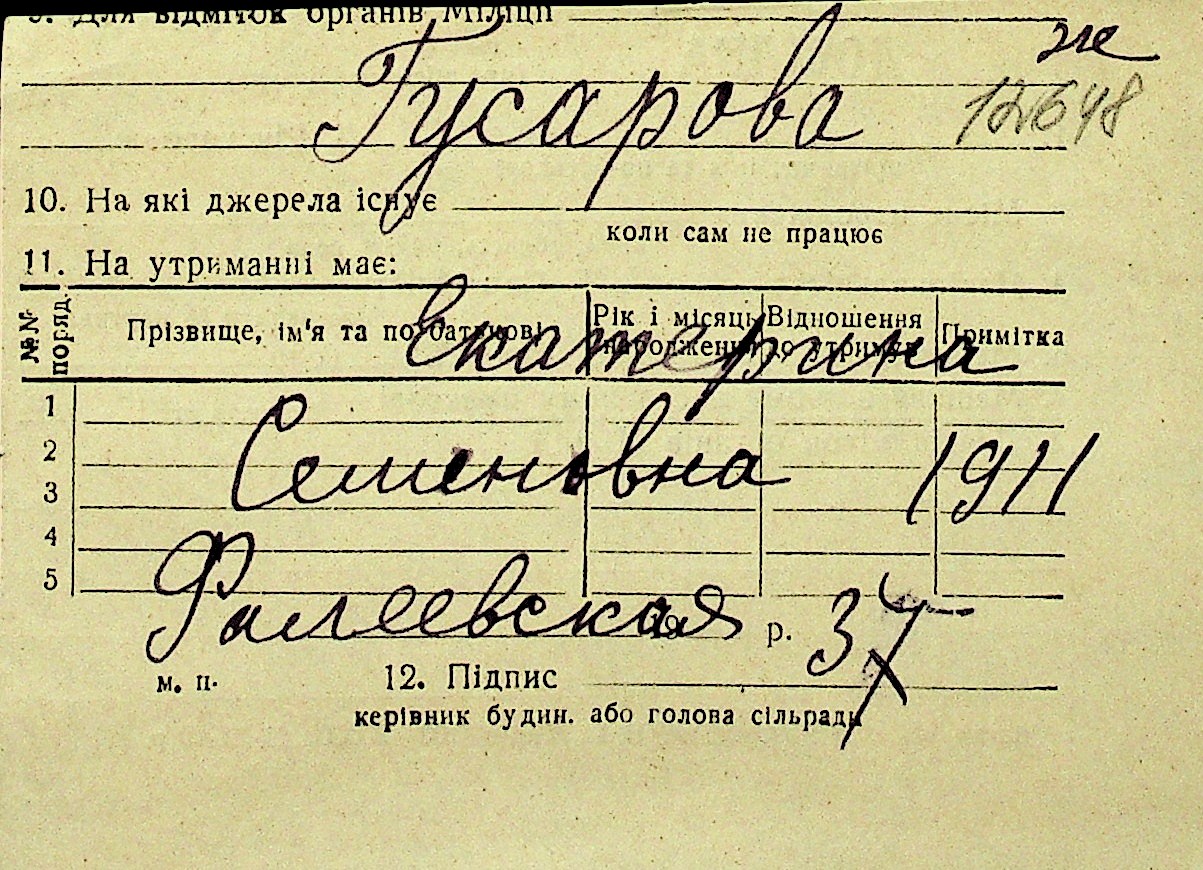 9. Для відміток органів Міліції
же
Гусарова
12648
10. На які джерела існує
коли сам не працює
11. На утриманні має:
№№ поряд.
Прізвище, ім'я та по батькові
Рік і місяць народження
Відношення до утримув.
Примітка
Екатерина
1
Семеновна
2
1911
3
4
5
Фалеевская
19
р.
37
м. п.
12. Підпис
керівник будин. або голова сільради